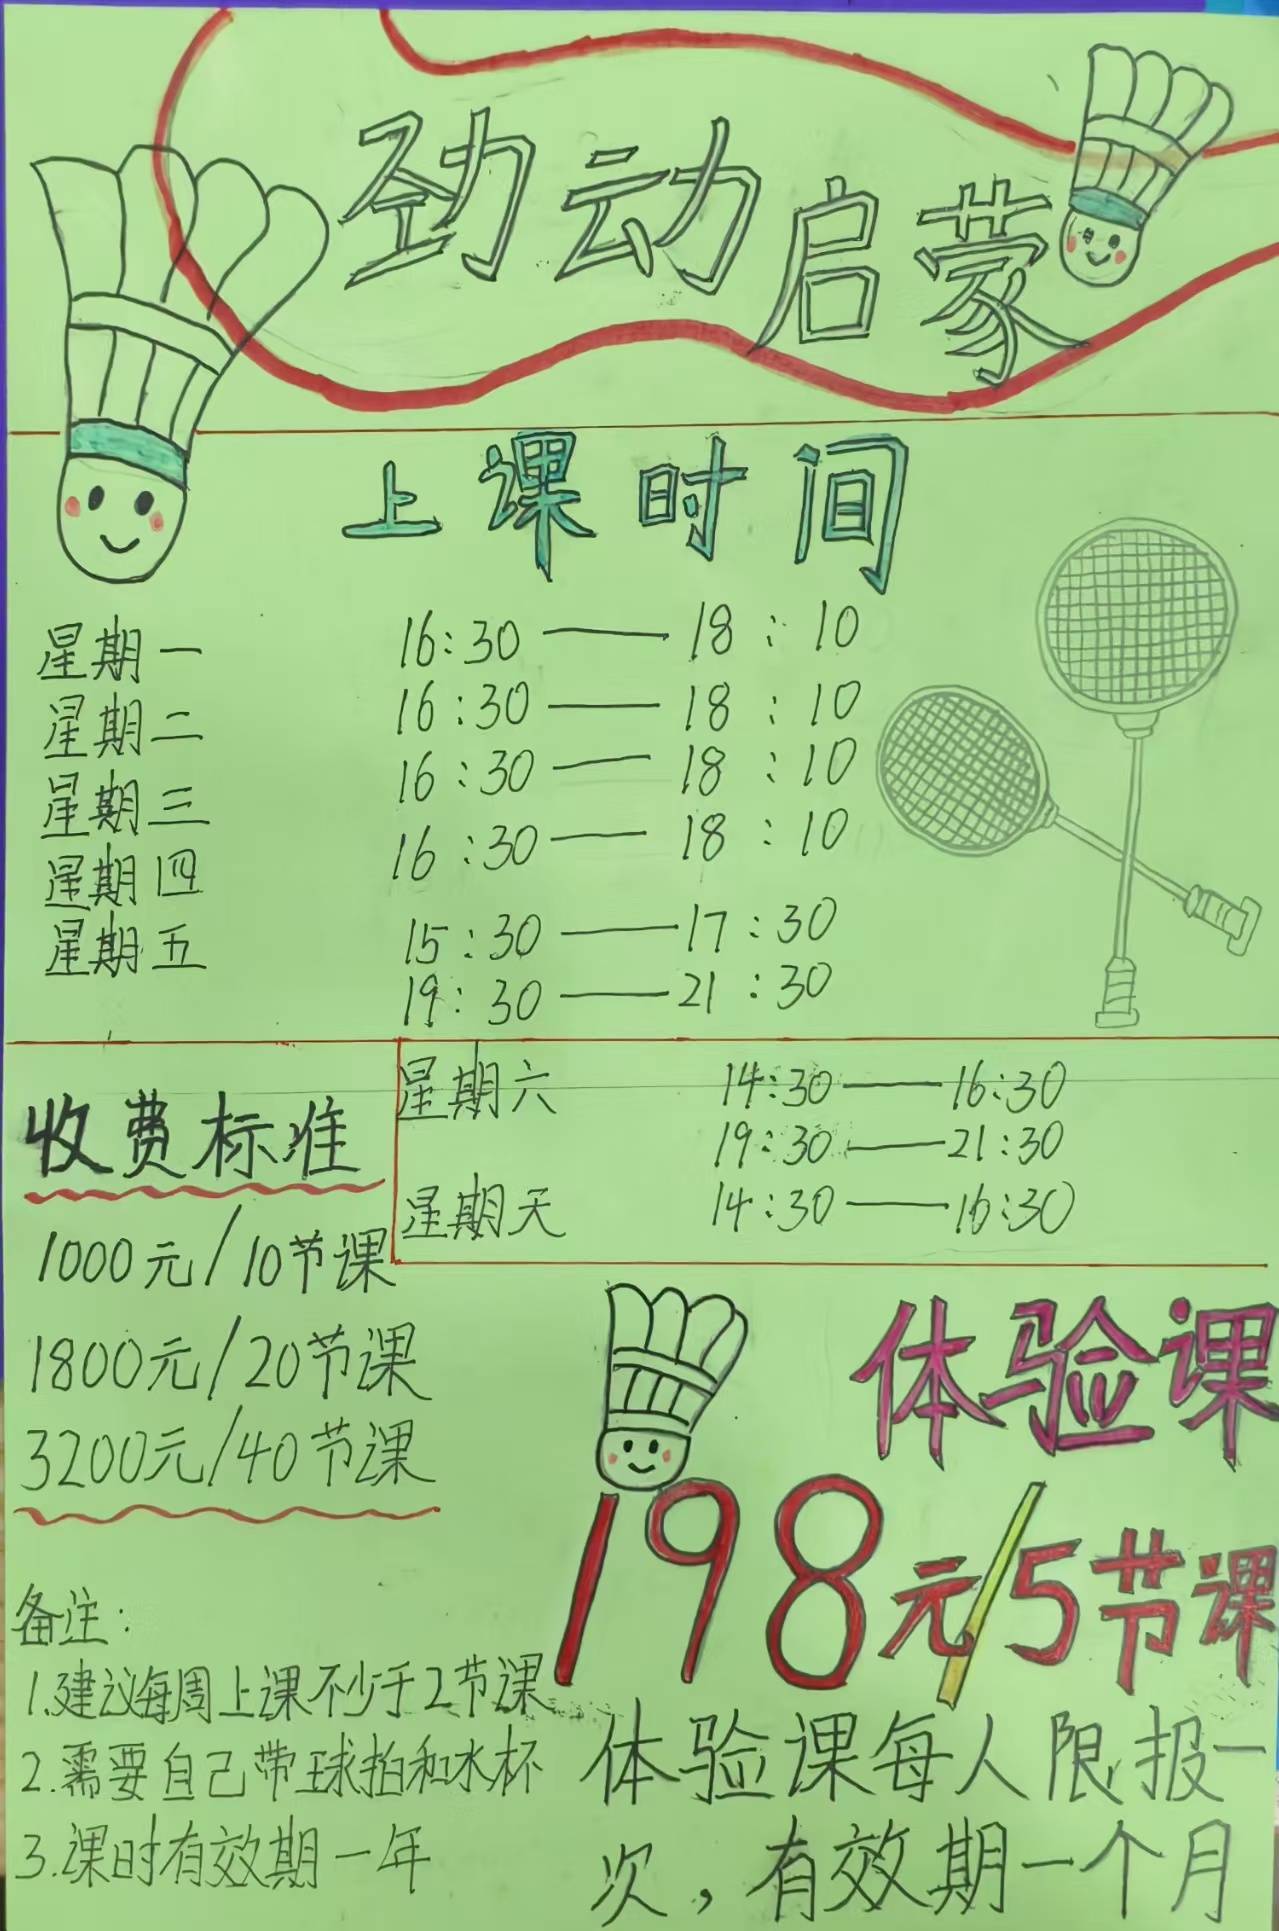 劲动启蒙
上课时间
星期一 16:30——18:10
星期二 16:30——18:10
星期三 16:30——18:10
星期四 16:30——18:10
星期五 15:30——17:30
19:30——21:30
星期六 14:30——16:30
19:30——21:30
星期天 14:30——16:30
收费标准
1000元/10节课
1800元/20节课
3200元/40节课
备注:
1.建议每周上课不少于2节课
2.需要自己带球拍和水杯
3.课时有效期一年
体验课
198元/5节课
体验课每人限报一
次，有效期一个月